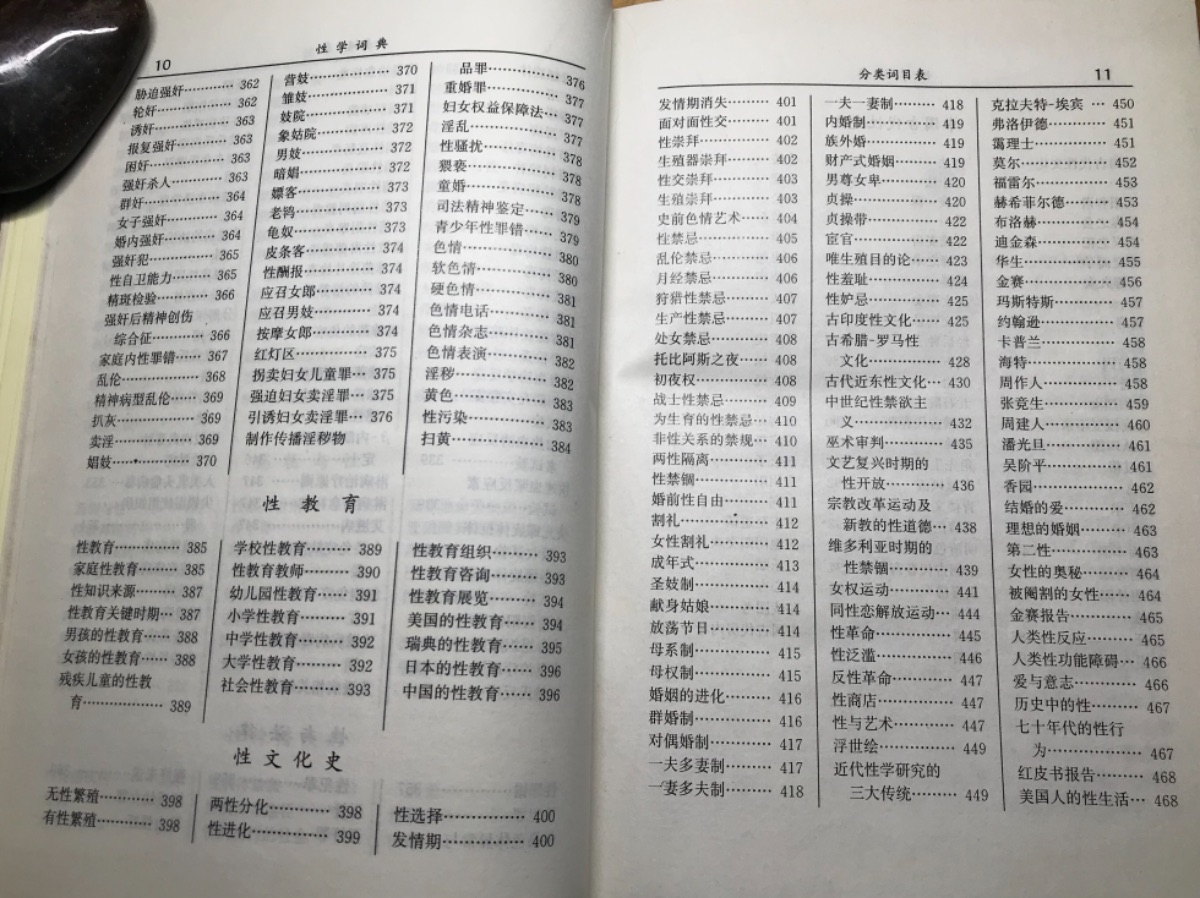 10
性学词典
胁迫强奸………… 362
轮奸…………… 362
诱奸…………… 363
报复强奸……… 363
困奸…………… 363
强奸杀人……… 363
群奸…………… 364
女子强奸……… 364
婚内强奸……… 364
强奸犯………… 365
性自卫能力…… 365
精斑检验……… 366
强奸后精神创伤
综合征……… 366
家庭内性罪错… 367
乱伦…………… 368
精神病型乱伦… 369
扒灰…………… 369
卖淫…………… 369
娼妓…………… 370
营妓…………… 370
雏妓…………… 371
妓院…………… 371
象姑院………… 372
男妓…………… 372
暗娼…………… 372
嫖客…………… 373
老鸨…………… 373
龟奴…………… 373
皮条客………… 374
性酬报………… 374
应召女郎……… 374
应召男妓……… 374
按摩女郎……… 374
红灯区………… 375
拐卖妇女儿童罪… 375
强迫妇女卖淫罪… 375
引诱妇女卖淫罪… 376
制作传播淫秽物
品罪………… 376
重婚罪………… 377
妇女权益保障法… 377
淫乱…………… 377
性骚扰………… 378
猥亵…………… 378
童婚…………… 378
司法精神鉴定… 379
青少年性罪错… 379
色情…………… 380
软色情………… 380
硬色情………… 381
色情电话……… 381
色情杂志……… 381
色情表演……… 382
淫秽…………… 382
黄色…………… 383
性污染………… 383
扫黄…………… 384
性教育
性教育………… 385
家庭性教育…… 385
性知识来源…… 387
性教育关键时期… 387
男孩的性教育… 388
女孩的性教育… 388
残疾儿童的性教
育…………… 389
学校性教育…… 389
性教育教师…… 390
幼儿园性教育… 391
小学性教育…… 391
中学性教育…… 392
大学性教育…… 392
社会性教育…… 393
性教育组织…… 393
性教育咨询…… 393
性教育展览…… 394
美国的性教育… 394
瑞典的性教育… 395
日本的性教育… 396
中国的性教育… 396
性文化史
无性繁殖……… 398
有性繁殖……… 398
两性分化……… 398
性进化………… 399
性选择………… 400
发情期………… 400
分类词目表
11
发情期消失…… 401
面对面性交…… 401
性崇拜………… 402
生殖器崇拜…… 402
性交崇拜……… 403
生殖崇拜……… 403
史前色情艺术… 404
性禁忌………… 405
乱伦禁忌……… 406
月经禁忌……… 406
狩猎性禁忌…… 407
生产性禁忌…… 407
处女禁忌……… 408
托比阿斯之夜… 408
初夜权………… 408
战士性禁忌…… 409
为生育的性禁忌… 410
非性关系的禁规… 410
两性隔离……… 411
性禁锢………… 411
婚前性自由…… 411
割礼…………… 412
女性割礼……… 412
成年式………… 413
圣妓制………… 414
献身姑娘……… 414
放荡节日……… 414
母系制………… 415
母权制………… 415
婚姻的进化…… 416
群婚制………… 416
对偶婚制……… 417
一夫多妻制…… 417
一妻多夫制…… 418
一夫一妻制…… 418
内婚制………… 419
族外婚………… 419
财产式婚姻…… 419
男尊女卑……… 420
贞操…………… 420
贞操带………… 422
宦官…………… 422
唯生殖目的论… 423
性羞耻………… 424
性妒忌………… 425
古印度性文化… 425
古希腊-罗马性
文化………… 428
古代近东性文化… 430
中世纪性禁欲主
义…………… 432
巫术审判……… 435
文艺复兴时期的
性开放……… 436
宗教改革运动及
新教的性道德… 438
维多利亚时期的
性禁锢……… 439
女权运动……… 441
同性恋解放运动… 444
性革命………… 445
性泛滥………… 446
反性革命……… 447
性商店………… 447
性与艺术……… 447
浮世绘………… 449
近代性学研究的
三大传统…… 449
克拉夫特-埃宾… 450
弗洛伊德……… 451
霭理士………… 451
莫尔…………… 452
福雷尔………… 453
赫希菲尔德…… 453
布洛赫………… 454
迪金森………… 454
华生…………… 455
金赛…………… 456
玛斯特斯……… 457
约翰逊………… 457
卡普兰………… 458
海特…………… 458
周作人………… 458
张竞生………… 459
周建人………… 460
潘光旦………… 461
吴阶平………… 461
香园…………… 462
结婚的爱……… 462
理想的婚姻…… 463
第二性………… 463
女性的奥秘…… 464
被阉割的女性… 464
金赛报告……… 465
人类性反应…… 465
人类性功能障碍… 466
爱与意志……… 466
历史中的性…… 467
七十年代的性行
为…………… 467
红皮书报告…… 468
美国人的性生活… 468